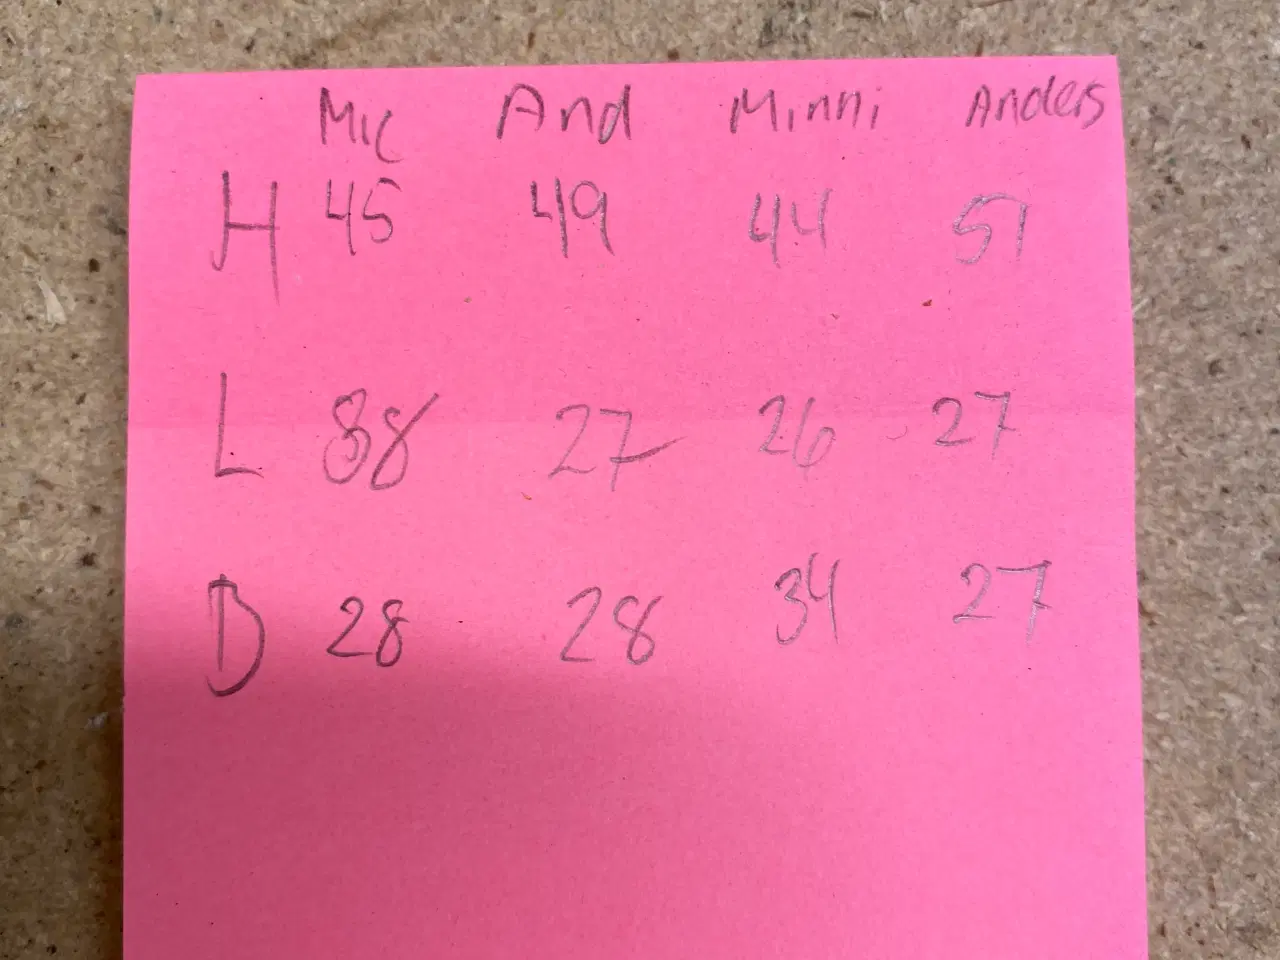 Mic And Minni Anders
H 45 49 44 51
L 88 27 26 27
D 28 28 34 27